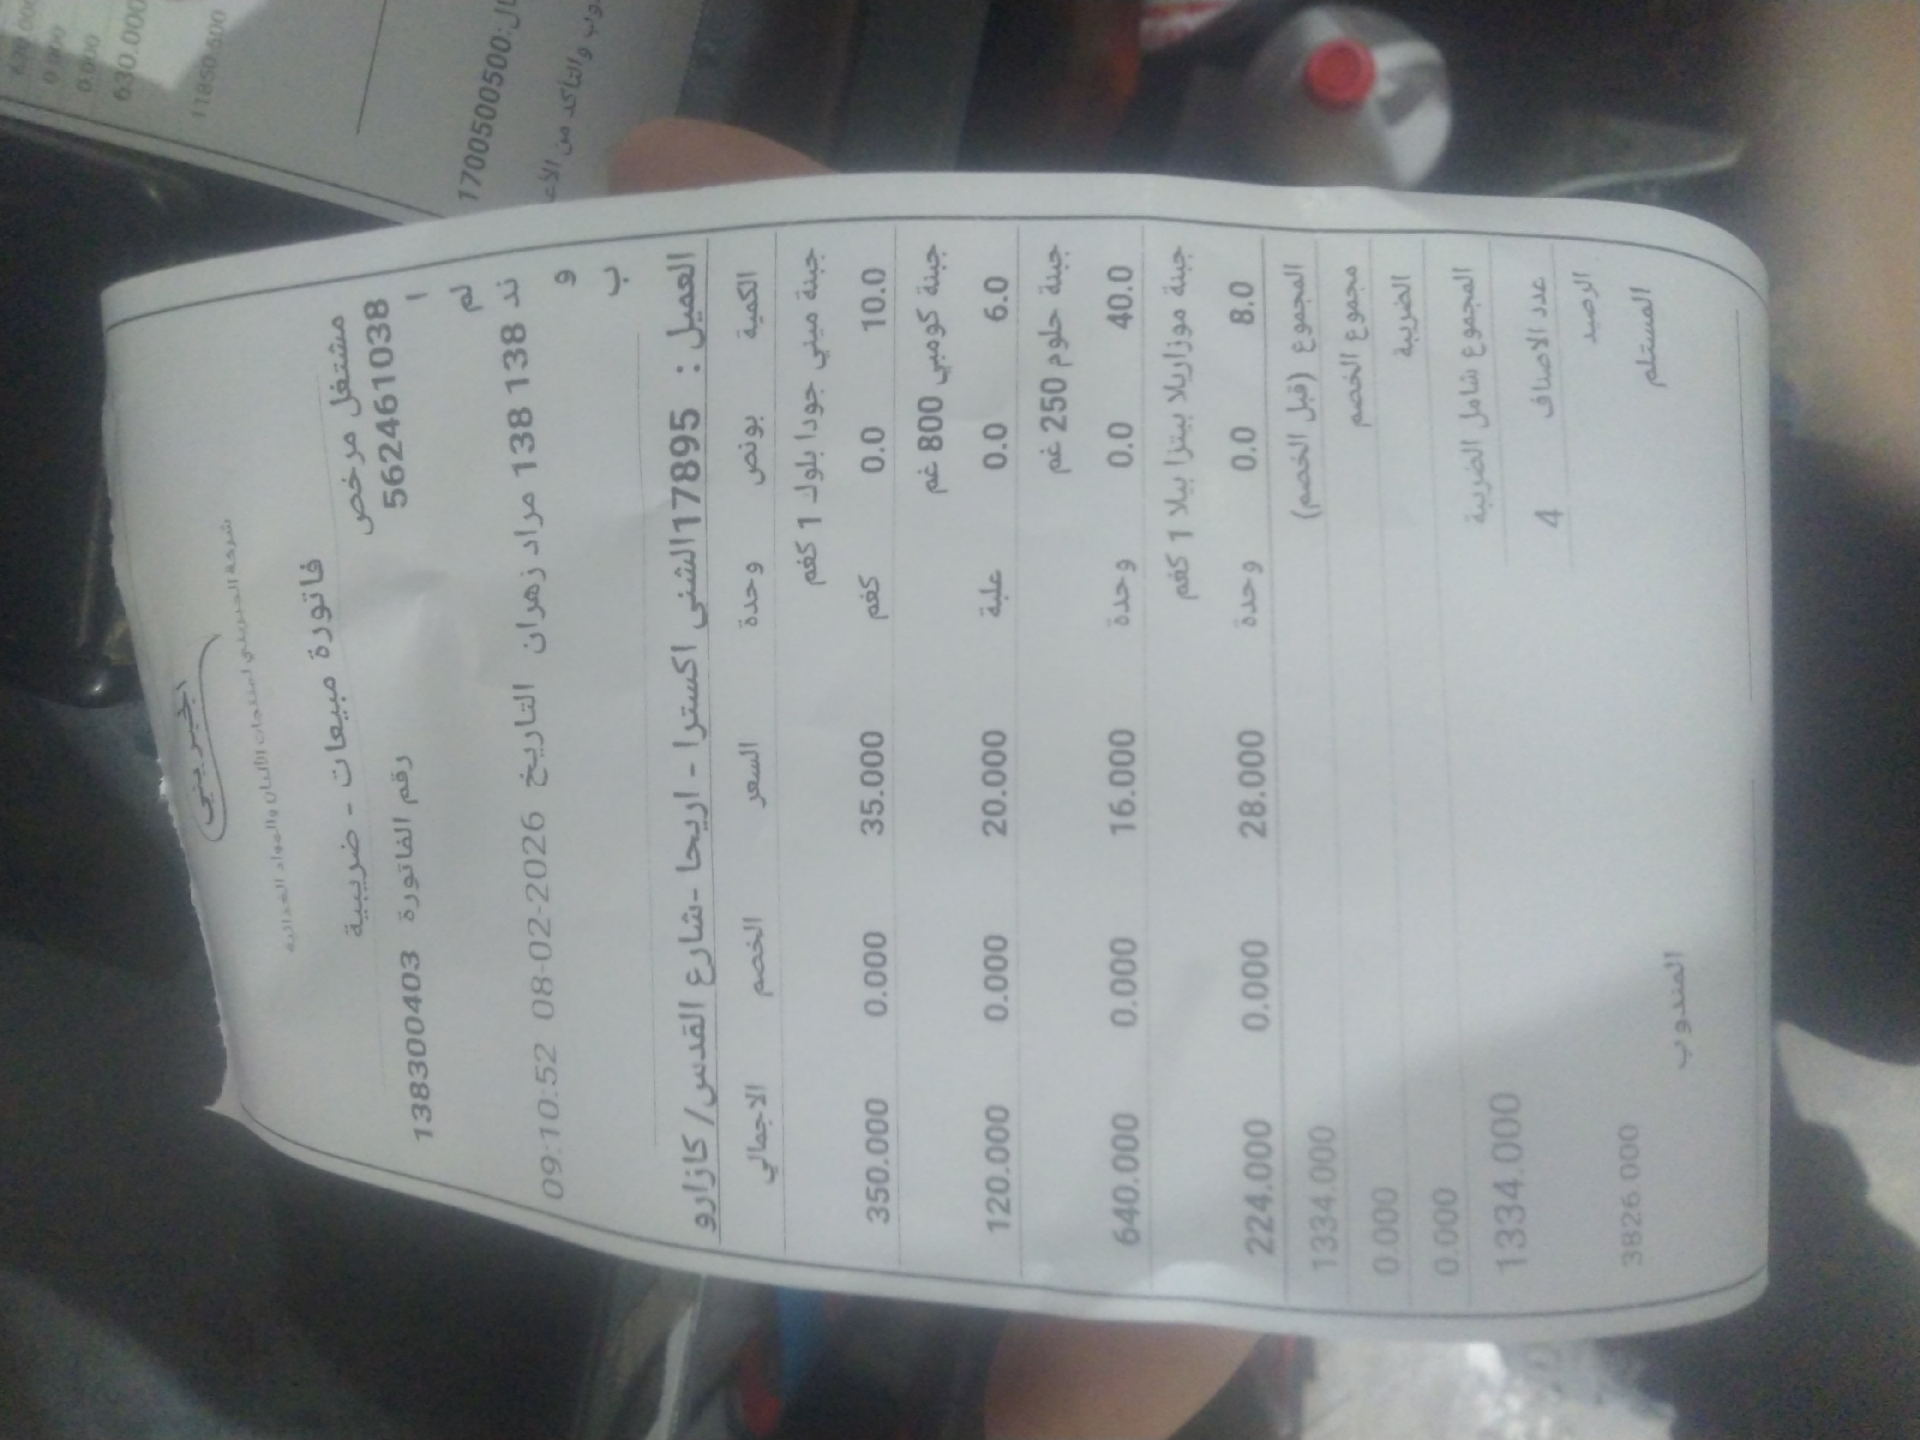 جبريني
شركة الجبريني لمنتجات الألبان والمواد الغذائية
فاتورة مبيعات - ضريبية
مشتغل مرخص
562461038
رقم الفاتورة 138300403
المندوب 138 138 مراد زهران التاريخ 2026-02-08 09:10:52
العميل : 17895الشني اكسترا - اريحا -شارع القدس/ كازارو
الكمية بونص وحدة السعر الخصم الاجمالي
جبنة ميني جودا بلوك 1 كغم
10.0 0.0 كغم 35.000 0.000 350.000
جبنة كومبي 800 غم
6.0 0.0 علبة 20.000 0.000 120.000
جبنة حلوم 250 غم
40.0 0.0 وحدة 16.000 0.000 640.000
جبنة موزاريلا بيتزا بيلا 1 كغم
8.0 0.0 وحدة 28.000 0.000 224.000
المجموع (قبل الخصم) 1334.000
مجموع الخصم 0.000
الضريبة 0.000
المجموع شامل الضريبة 1334.000
عدد الاصناف 4
الرصيد 3826.000
المستلم المندوب
0.000
630.000
11850.500
1700500500